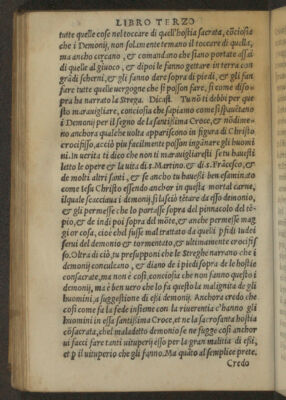 LIBRO TERZO
tutte quelle cose nel toccare di quell'hostia sacrata, cõciosia
che i Demonij, non solamente temano il toccare di quella,
ma ancho cercano, & comandano che siano portate assai
di quelle al giuoco, & dipoi le fanno gettare in terra con
grãdi scherni, & gli fanno dare sopra di piedi, & gli fan
fare tutte quelle uergogne che si posson fare, si come diso-
pra ha narrato la Strega. Dicast. Tu nõ ti debbi per que
sto marauigliare, conciosia che sapiamo come si spauẽtano
i Demonij per il segno de la santissima Croce, & nõdime-
no anchora qualche uolta appariscono in figura di Christo
crocifisso, acciò piu facilmente posson ingãnare gli huomi
ni. In uerita ti dico che non ti marauigliaresti se tu hauessi
letto le opere & la uita di s. Martino. & di s. Frãcesco, &
de molti altri santi, et se ancho tu hauessi ben esaminato
come Iesu Christo essendo anchor in questa mortal carne,
il quale scacciaua i demonij, si lasciò tẽtare da esso demonio,
& gli permesse che lo portasse sopra del pinnacolo del tẽ-
pio, & de indi poi sopra del mõte, & anche permesse mag
gior cosa, cioè ch'el fusse mal trattato da quelli pfidi iudei
serui del demonio & tormentato, & ultimamente crocifis
so. Oltra di ciò, tu presupponi che le Streghe narrano che i
demonij conculcano, & diano de i piedi sopra de le hostie
consacrate, ma non è cosi, conciosia che non fanno questo i
demonij, ma è ben uero che lo fa questo la malignita de gli
huomini, a suggestione di essi demonij. Anchora credo che
cosi come fa la fede insieme con la riuerentia c'hanno gli
huomini in essa santissima Croce, et ne la sacrosanta hostia
cõsacrata, ch'el maladetto demonio se ne fugge cosi anchor
ui facci fare tanti uituperij esso per la gran malitia di essi,
et p il uituperio che gli fanno. Ma quãto al semplice prete,
Credo